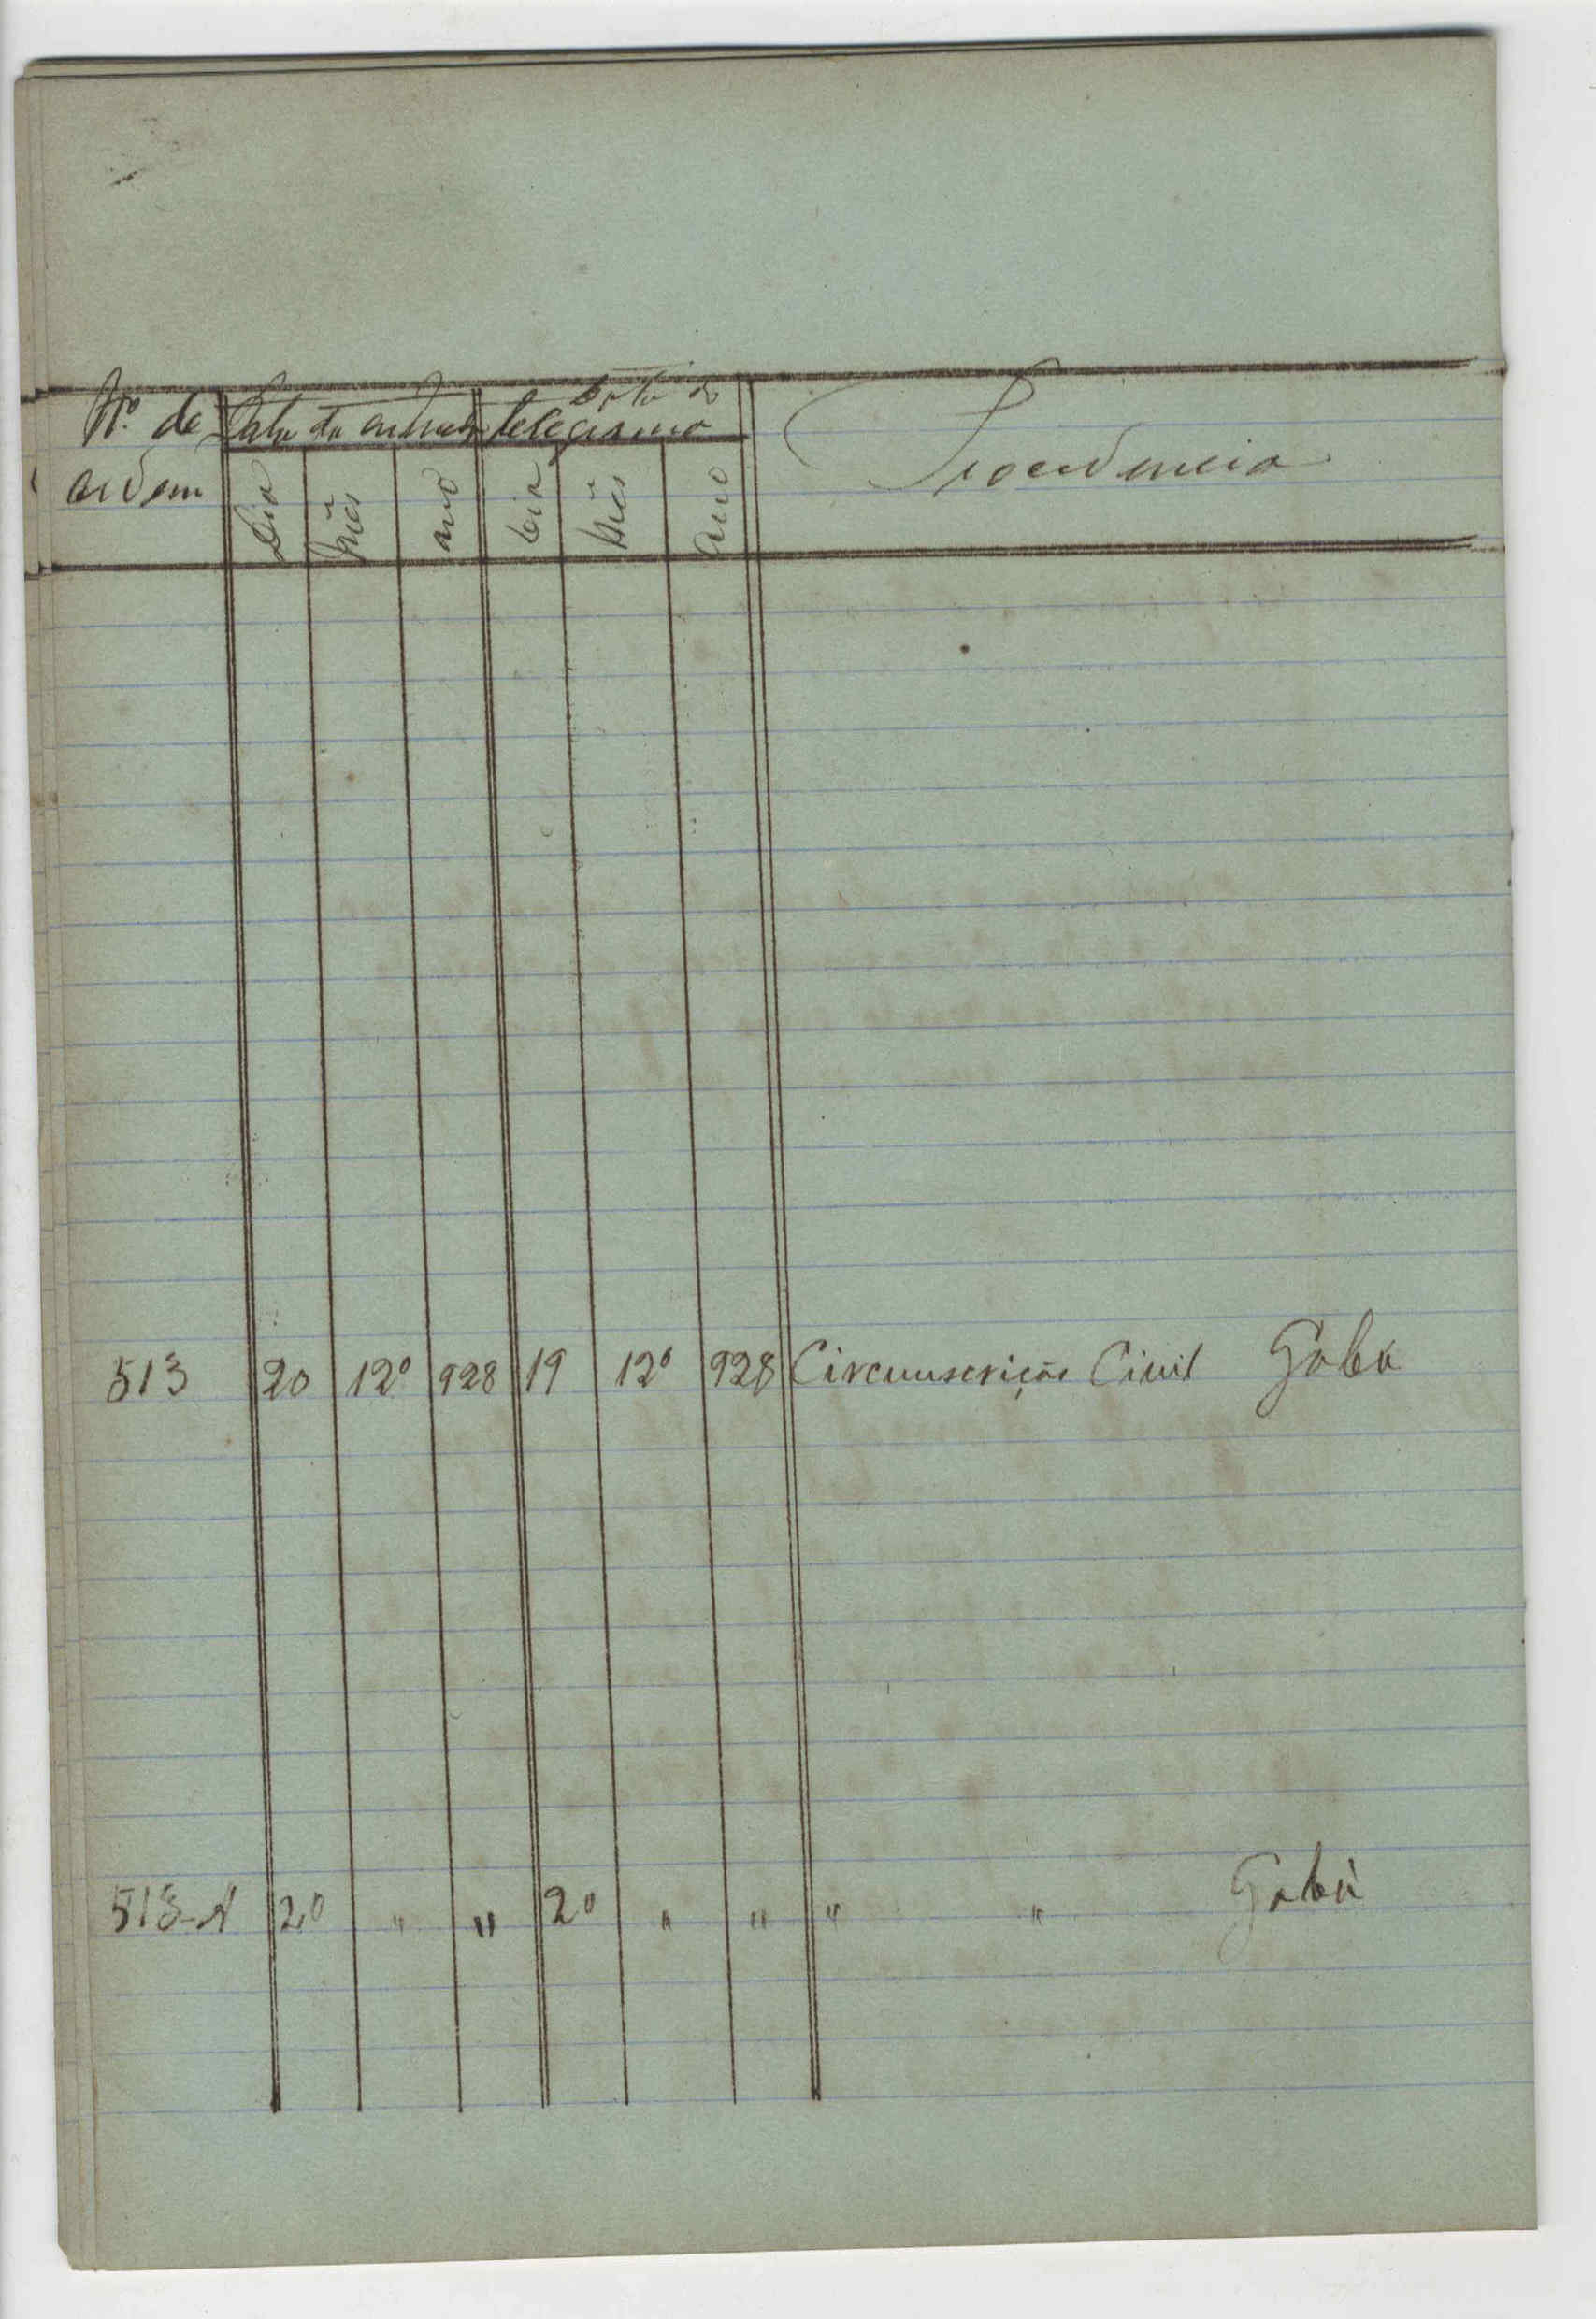 Nº de Data da entrada Data do telegrama Procedencia
ordem Dia Mês ano Dia Mês ano
513 20 12º 928 19 12º 928 Circunscrição Civil Gabú
513-A 20 " " 20 " " " " Gabú